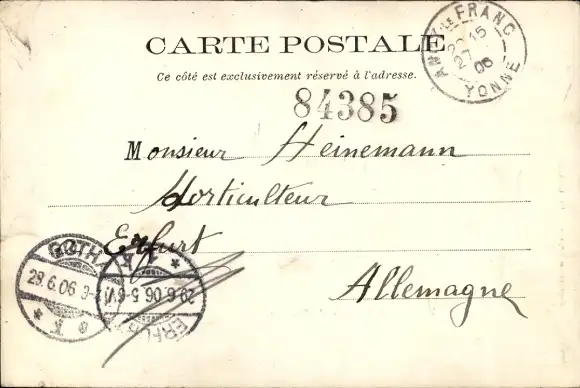 CARTE POSTALE
Ce côté est exclusivement réservé à l'adresse.
84385
Monsieur Heinemann
Horticulteur
Erfurt
Allemagne
ANCY LE FRANC
15
27
06
YONNE
GOTHA
29.6.06
29.6.06.5-6
ERFURT